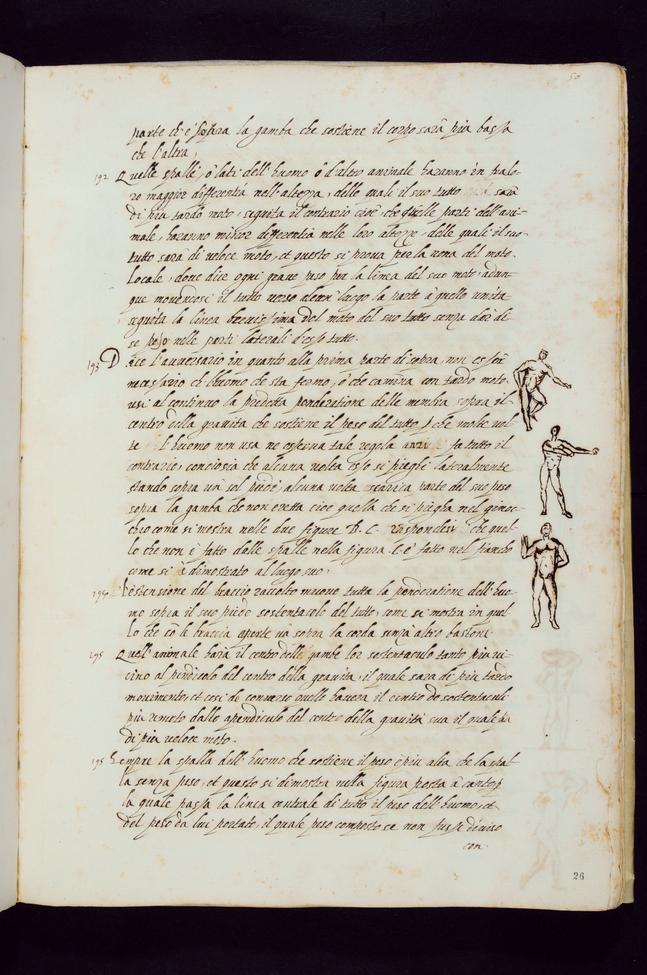 50
parte ch'è sopra la gamba che sostiene il corpo sarà più bassa
che l'altra.
192 Quelle spalli, ò lati dell'huomo ò d'altro animale haranno in fra lo-
ro maggior differentia nell'altezza, delle quali il suo tutto sarà
di più tardo moto, seguita il contrario cioè che quelle parti dell'ani-
male, haranno minor differentia nelle loro altezze, delle quali il suo
tutto sarà di veloce moto, et questo si prova per la nona del moto
locale, dove dice ogni grave pesa per la linea del suo moto, adun-
que movendosi il tutto verso alcun luogo la parte à quello unita
seguita la linea brevissima del moto del suo tutto senza dar di
se peso nelle parti laterali d'esso tutto.
193 Dice l'avversario in quanto alla prima parte di sopra, non esser
necessario ch l'huomo che sta fermo, ò che camina con tardo moto
usi al continuo la predetta ponderatione delle membra sopra il
centro della gravità che sostiene il peso del tutto, che molte vol-
te l'huomo non usa ne osserva tale regola anzi fa tutto il
contrario, conciosia che alcuna volta esso si pieghi lateralmente
stando sopra un sol piede, alcuna volta scarica parte del suo peso
sopra la gamba che non è retta cioè quella che si piegha nel ginoc-
chio come si mostra nelle due figure B. C. rispondesi che quel-
lo che non è fatto dalle spalle nella figura C. è fatto nel fianco
come si è dimostrato al luogo suo.
194 L'estensione del braccio raccolto muove tutta la ponderatione dell'huo-
mo sopra il suo piede sostentacolo del tutto, come si mostra in quel-
lo che cō le braccia aperte và sopra la corda senza altro bastone
195 Quell'animale harà il centro delle gambe lor sostentaculo tanto più vi-
cino al pendicolo del centro della gravità, il quale sarà di più tardo
movimento, et così de converso quello haverà il centro de sostentaculi
più remoto dallo apendiculo del centro della gravità sua il quale fia
di più veloce moto.
195 Sempre la spalla dell'huomo che sostiene il peso è più alta che la spal-
la senza peso, et questo si dimostra nella figura posta à canto p
la quale passa la linea centrale di tutto il peso dell'huomo, et
del peso da lui portato, il quale peso composto se non fusse diviso
con
26